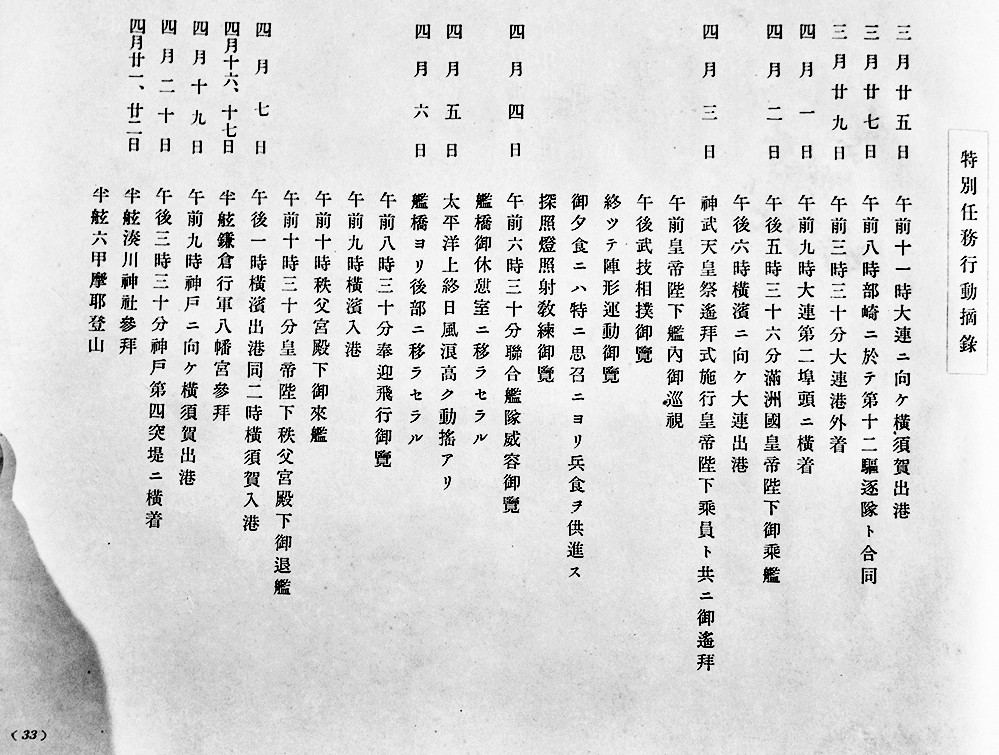 特別任務行動摘錄
三月廿五日 午前十一時大連ニ向ケ橫須賀出港
三月廿七日 午前八時部崎ニ於テ第十二驅逐隊ト合同
三月廿九日 午前三時三十分大連港外着
四月一日 午前九時大連第二埠頭ニ橫着
四月二日 午後五時三十六分滿洲國皇帝陛下御乘艦
午後六時橫濱ニ向ケ大連出港
四月三日 神武天皇祭遙拜式施行皇帝陛下乘員ト共ニ御遙拜
午前皇帝陛下艦內御巡視
午後武技相撲御覽
終ツテ陣形運動御覽
御夕食ニハ特ニ思召ニヨリ兵食ヲ供進ス
探照燈照射敎練御覽
四月四日 午前六時三十分聯合艦隊威容御覽
艦橋御休憇室ニ移ラセラル
四月五日 太平洋上終日風浪高ク動搖アリ
四月六日 艦橋ヨリ後部ニ移ラセラル
午前八時三十分奉迎飛行御覽
午前九時橫濱入港
午前十時秩父宮殿下御來艦
午前十時三十分皇帝陛下秩父宮殿下御退艦
四月七日 午後一時橫濱出港同二時橫須賀入港
四月十六、十七日 半舷鎌倉行軍八幡宮參拜
四月十九日 午前九時神戶ニ向ケ橫須賀出港
四月二十日 午後三時三十分神戶第四突堤ニ橫着
四月廿一、廿二日 半舷湊川神社參拜
半舷六甲摩耶登山
(33)